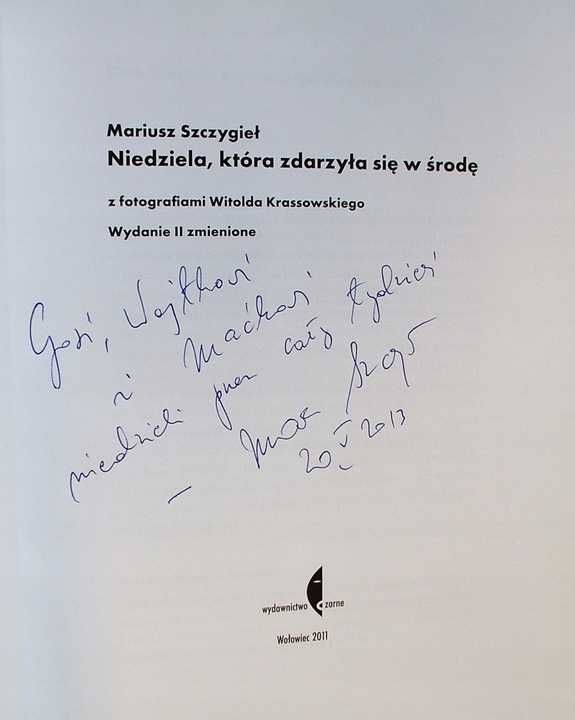 Mariusz Szczygieł
Niedziela, która zdarzyła się w środę
z fotografiami Witolda Krassowskiego
Wydanie II zmienione
Gosi, Wojtkowi
i Maćkowi
niedzieli przez cały tydzień
—
20 V 2013
wydawnictwo czarne
Wołowiec 2011